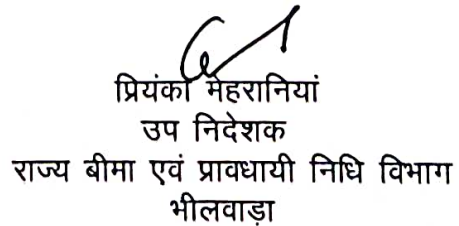 प्रियंका मेहरानियां
उप निदेशक
राज्य बीमा एवं प्रावधायी निधि विभाग
भीलवाड़ा